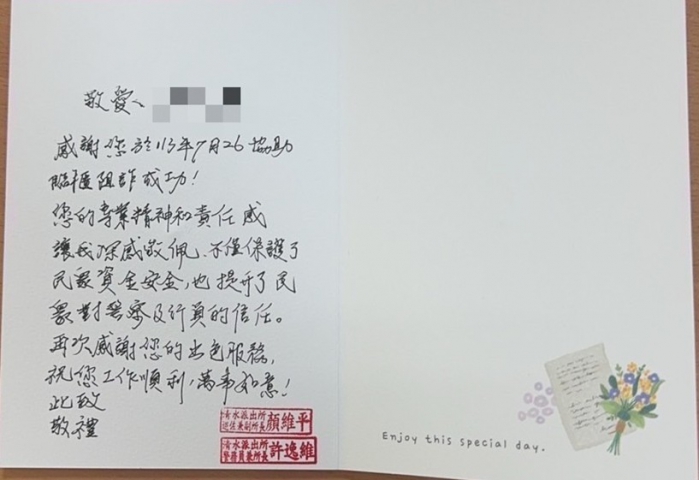 敬愛、
感謝您於113年7月26協助
臨櫃阻詐成功!
您的專業精神和責任感
讓我深感敬佩,不僅保護了
民眾資金安全,也提升了民
眾對警察及行員的信任。
再次感謝您的出色服務,
祝您工作順利,萬事如意!
此致
敬禮
清水派出所
巡佐兼副所長 顏維平
清水派出所
警務員兼所長 許逸維
Enjoy this special day.